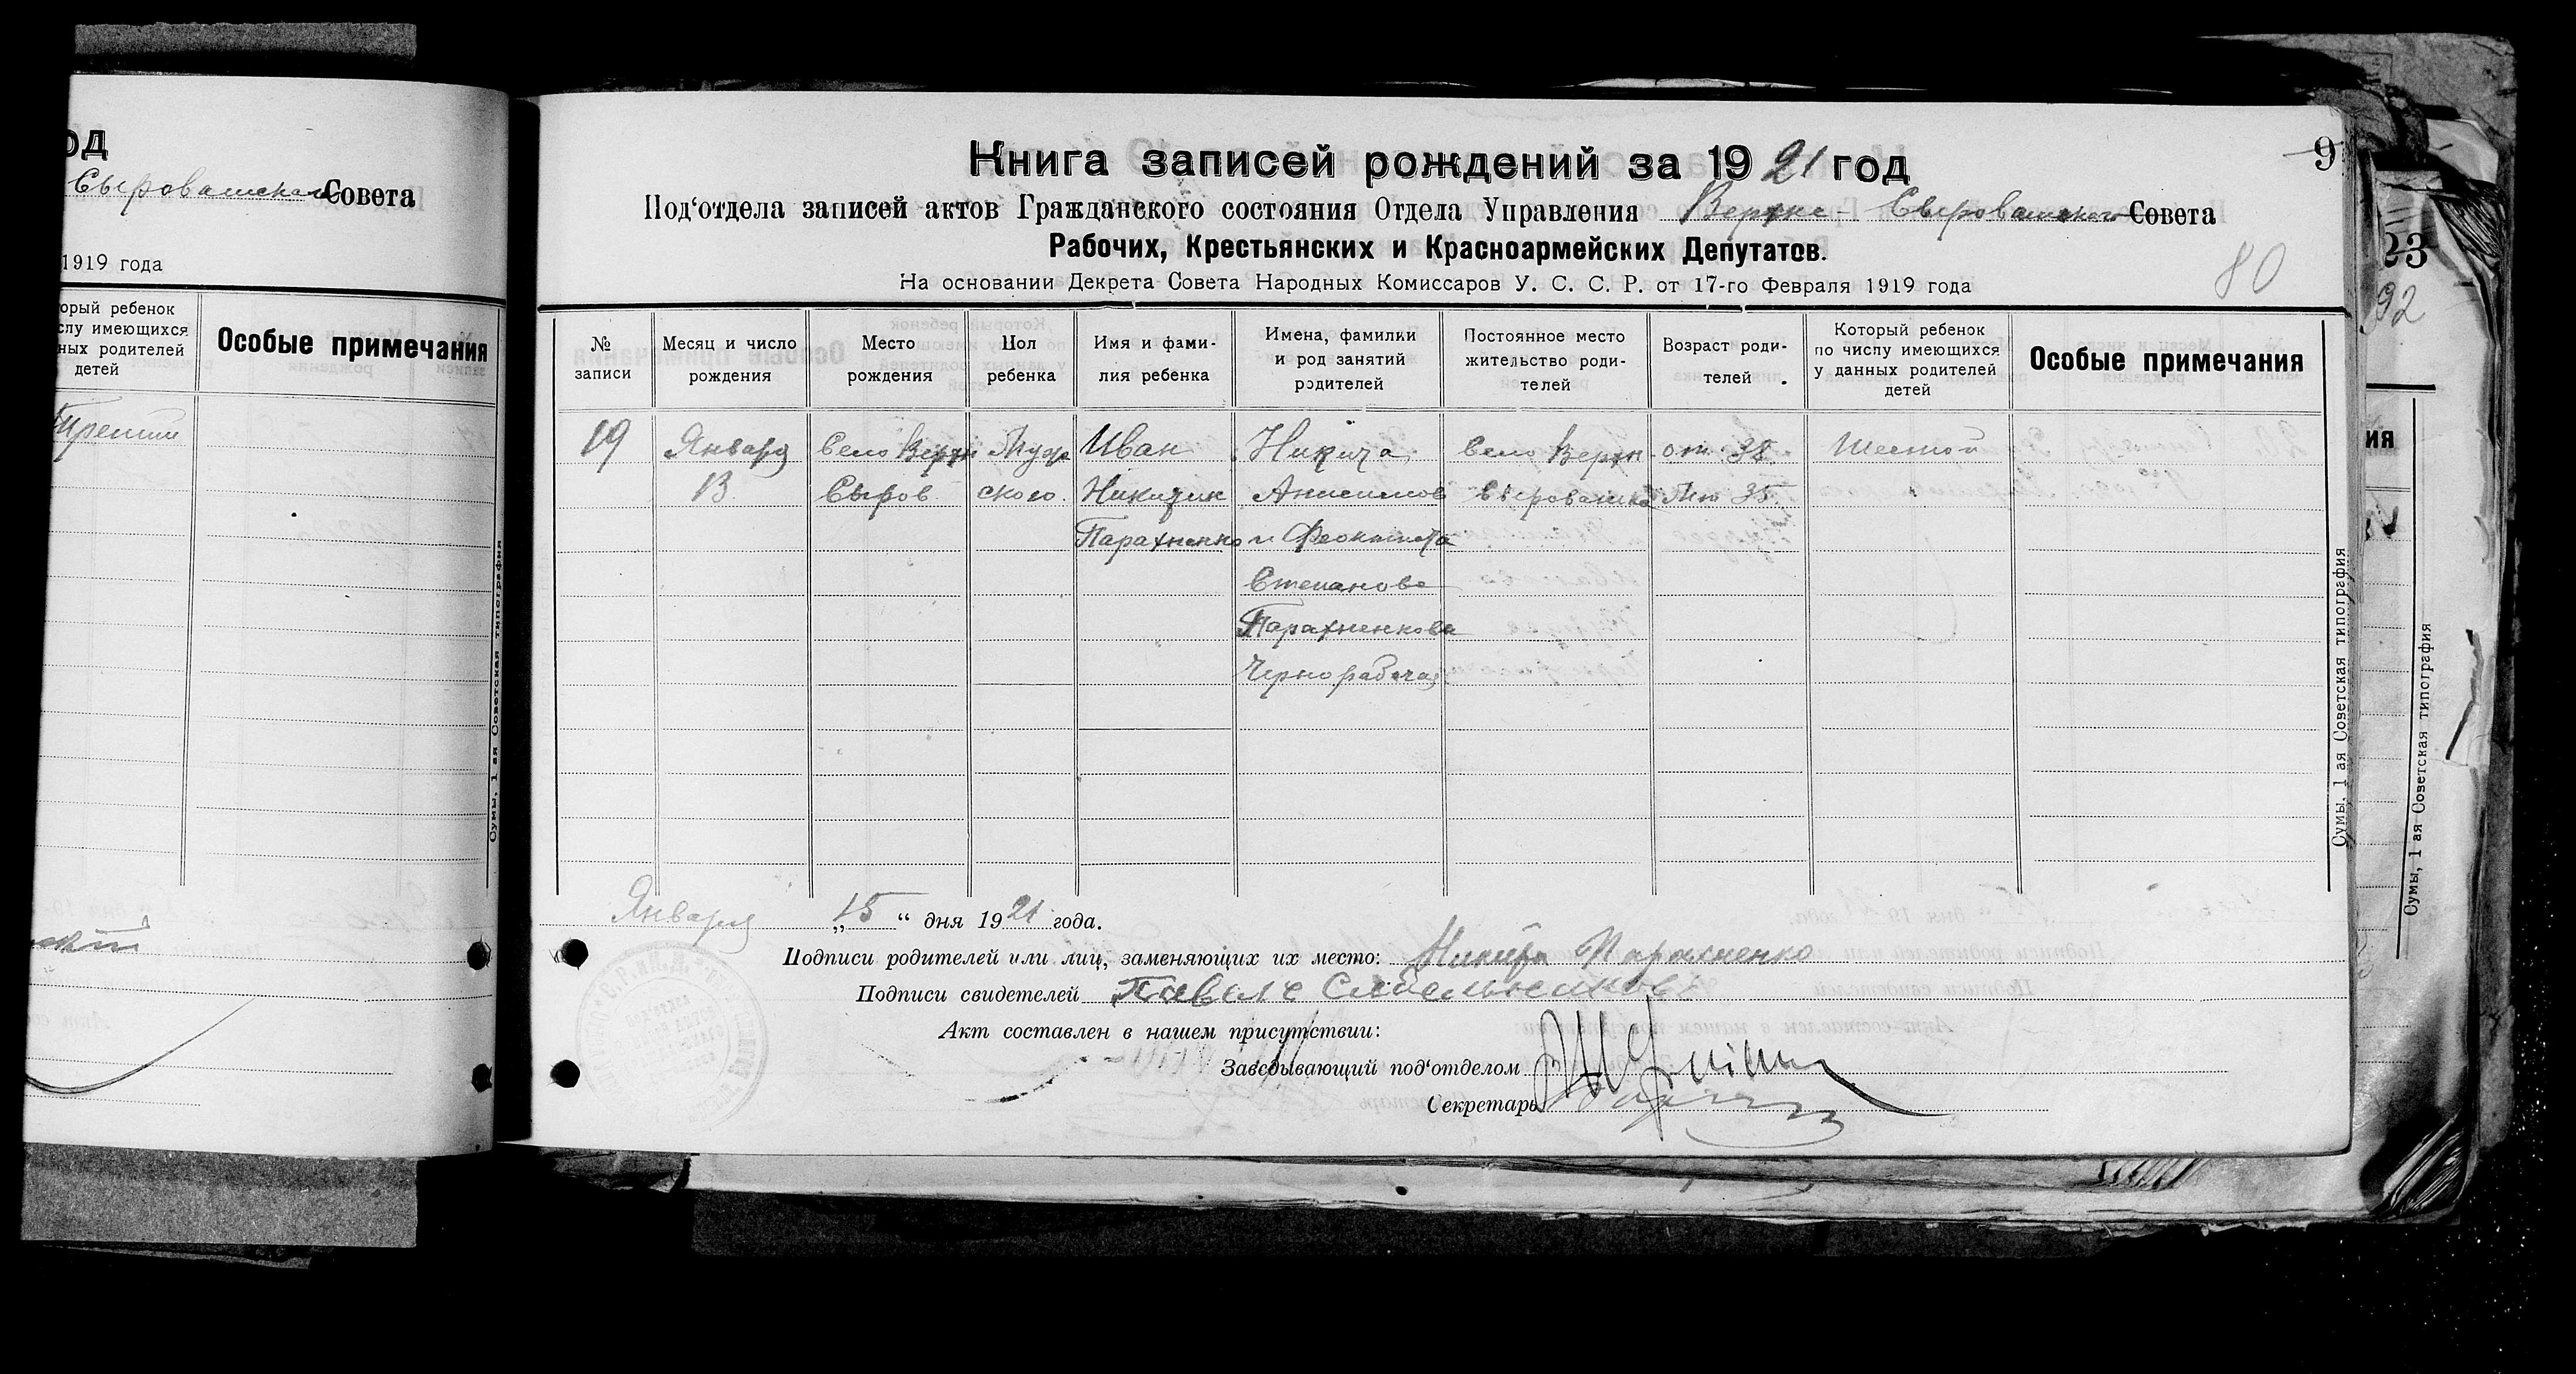 од
Сыроватского Совета
1919 года
орый ребенок
слу имеющихся
ных родителей
детей
Особые примечания
Третий
Сумы, 1 ая Советская типография
9
Книга записей рождений за 1921 год
Под‘отдела записей актов Гражданского состояния Отдела Управления Верхне-Сыроватского Совета
Рабочих, Крестьянских и Красноармейских Депутатов.
На основании Декрета Совета Народных Комиссаров У. С. С. Р. от 17-го Февраля 1919 года
80
№ записи
Месяц и число рождения
Место рождения
Пол ребенка
Имя и фами-
лия ребенка
Имена, фамилии
и род занятий
родителей
Постоянное место
жительство роди-
телей
Возраст роди-
телей
Который ребенок
по числу имеющихся
у данных родителей
детей
Особые примечания
19
Января
13
Село Верхн
Сыров
Муж
ского.
Иван
Никитин
Парахненко
Никита
Анисимов
и Феоктиста
Степанова
Парахненкова
Чернорабочая
Село Верхн
Сыроватка
от. 38.
Мт 35.
Шестой
Сумы, 1 ая Советская типография
Января „15“ дня 1921 года.
Подписи родителей или лиц, заменяющих их место: Никита Парахненко
Подписи свидетелей Павелъ
Акт составлен в нашем присутствии:
Заведывающий под‘отделом
Секретарь
23
92
ия
Сумы, 1 ая Советская типография